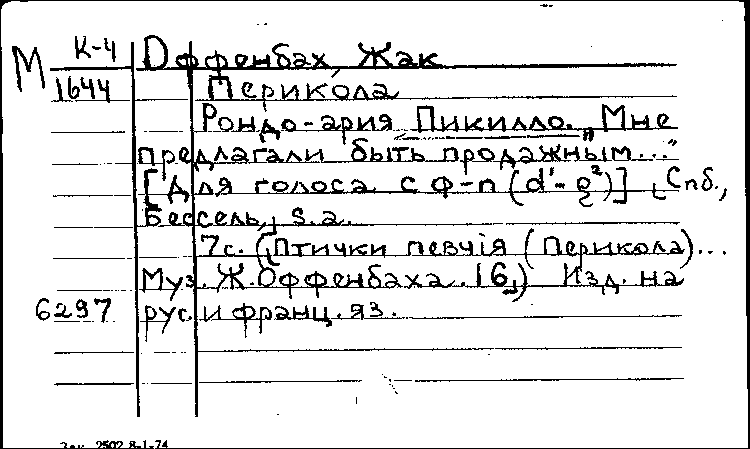 М К-4 Оффенбах, Жак
1644 Перикола
Рондо-ария Пикилло. „Мне
предлагали быть продажным..."
[Для голоса с ф-п (d¹-g²)] Спб.,
Бессель, s.a.
7с. (Птички певчія (Перикола)...
Муз. Ж.Оффенбаха. 16) Изд. на
6297 рус. и франц. яз.
Зак. 2502 8-1-74